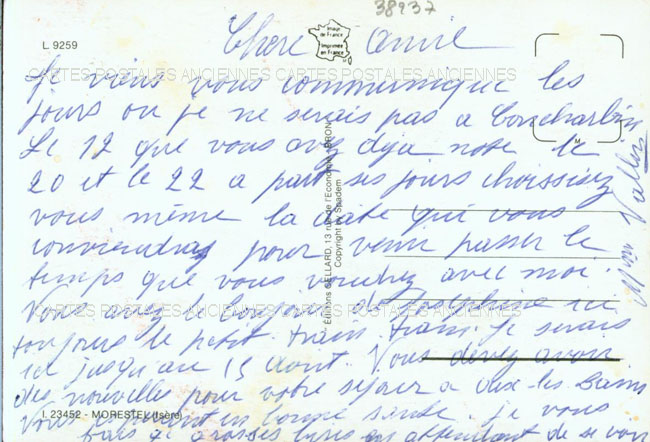 38937
L 9259
Chere Amie
Imprimé en France
CARTES POSTALES ANCIENNES CARTES POSTALES ANCIENNES
Je viens vous communique les
jours ou je ne serais pas a
Le 12 que vous avez deja note le
20 et le 22 a part ses jours choissisez
vous même la date qui vous
conviendras pour venir passer le
temps que vous voudrez avec moi.
Vous avez le bonjour de Josephine ici
toujours le petit train train. je serais
ici jusqu au 15 Aout. Vous devez avoir
des nouvelles pour votre sejour a Aix-les Bains
Vous en bonne sante. je vous
fais grosses bises en attendant de se voir
Mme Vallin
Éditions CELLARD, 13 rue de l'Economie, BRON
Copyright by Spadem
CARTES POSTALES ANCIENNES CARTES POSTALES ANCIENNES
I. 23452 - MORESTEL (Isère)